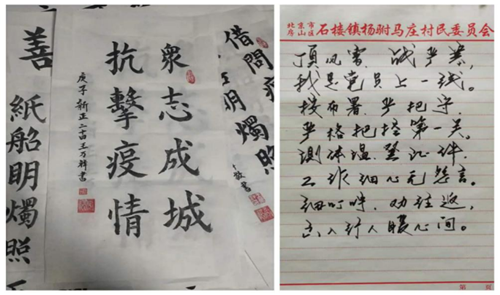 借問
明燭照
衆志成城
抗擊疫情
善
紙船明燭照
北京市房山区石楼镇杨驸马庄村民委员会
顶风雪，战严寒，
我是党员上一线。
按布署，严把守，
严格把控第一关。
测体温，登记详，
工作细心无怨言。
细心听，劝往返，
出入行人暖心间。